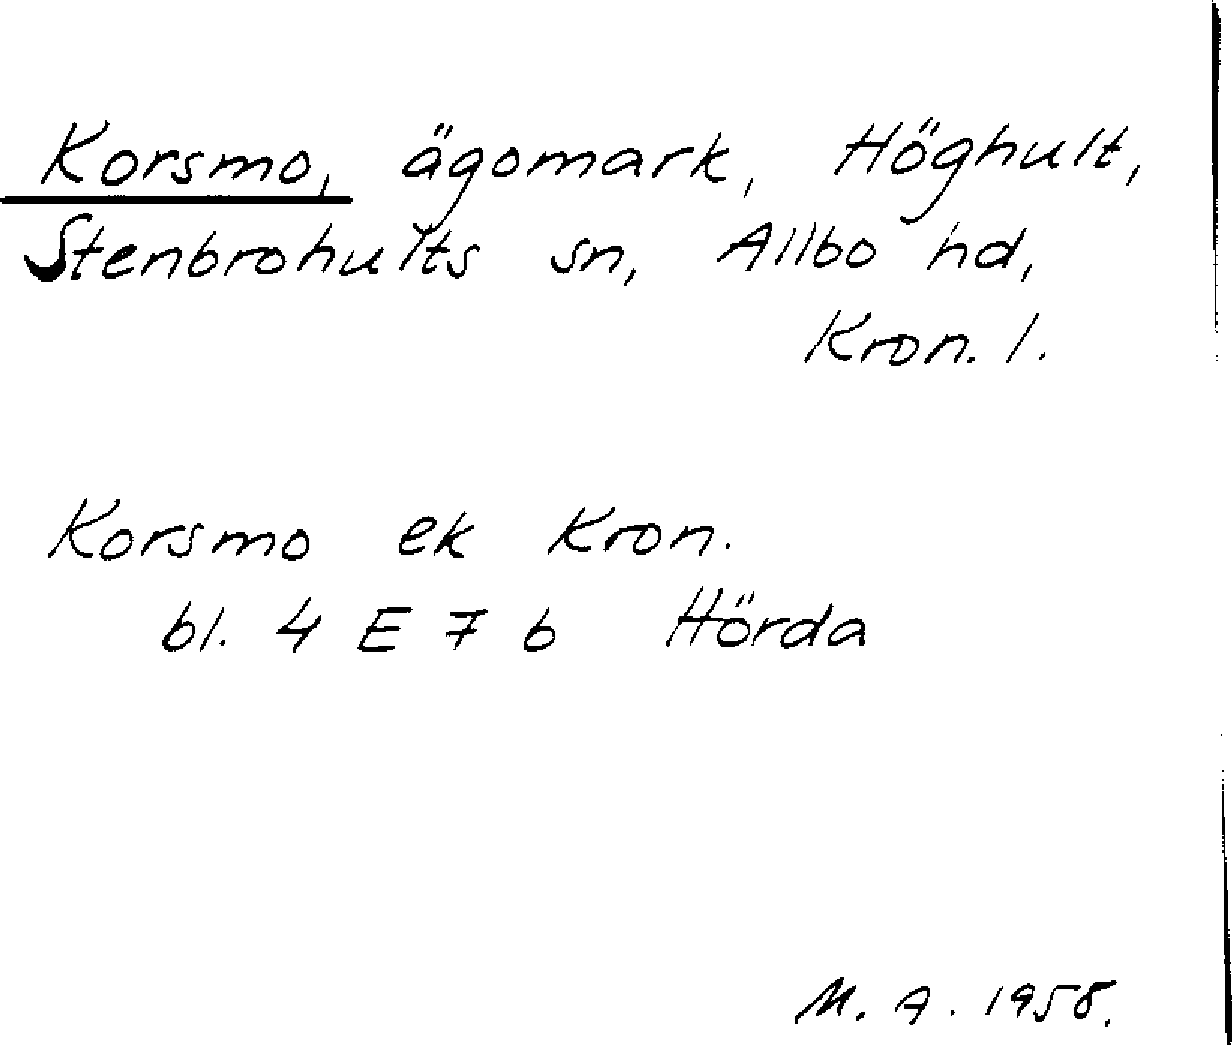 Korsmo, ägomark, Höghult,
Stenbrohults sn, Allbo hd,
Kron. l.
Korsmo ek Kron.
bl. 4 E 7 b Hörda
M. A. 1958.